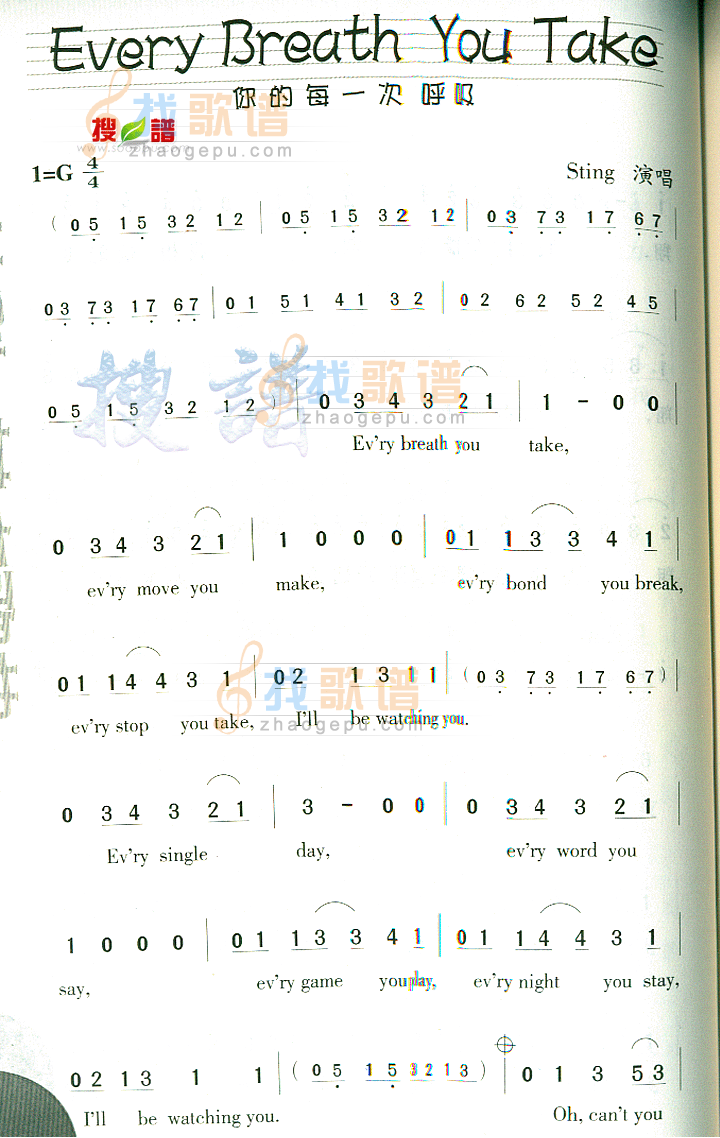 Every Breath You Take
你的每一次呼吸
找歌谱
搜谱
zhaogepu.com
1=G 4/4
Sting 演唱
( 0 5 1 5 3 2 1 2 | 0 5 1 5 3 2 1 2 | 0 3 7 3 1 7 6 7 |
0 3 7 3 1 7 6 7 | 0 1 5 1 4 1 3 2 | 0 2 6 2 5 2 4 5 |
搜譜 找歌谱
0 5 1 5 3 2 1 2 ) | 0 3 4 3 2 1 | 1 - 0 0 |
zhaogepu.com
Ev'ry breath you take,
0 3 4 3 2 1 | 1 0 0 0 | 0 1 1 3 3 4 1 |
ev'ry move you make, ev'ry bond you break,
找歌谱
0 1 1 4 4 3 1 | 0 2 1 3 1 1 | ( 0 3 7 3 1 7 6 7 ) |
ev'ry stop you take, I'll be watching you.
zhaogepu.com
0 3 4 3 2 1 | 3 - 0 0 | 0 3 4 3 2 1 |
Ev'ry single day, ev'ry word you
1 0 0 0 | 0 1 1 3 3 4 1 | 0 1 1 4 4 3 1 |
say, ev'ry game you play, ev'ry night you stay,
0 2 1 3 1 1 | ( 0 5 1 5 3 2 1 3 ) | 0 1 3 5 3 |
I'll be watching you. Oh, can't you